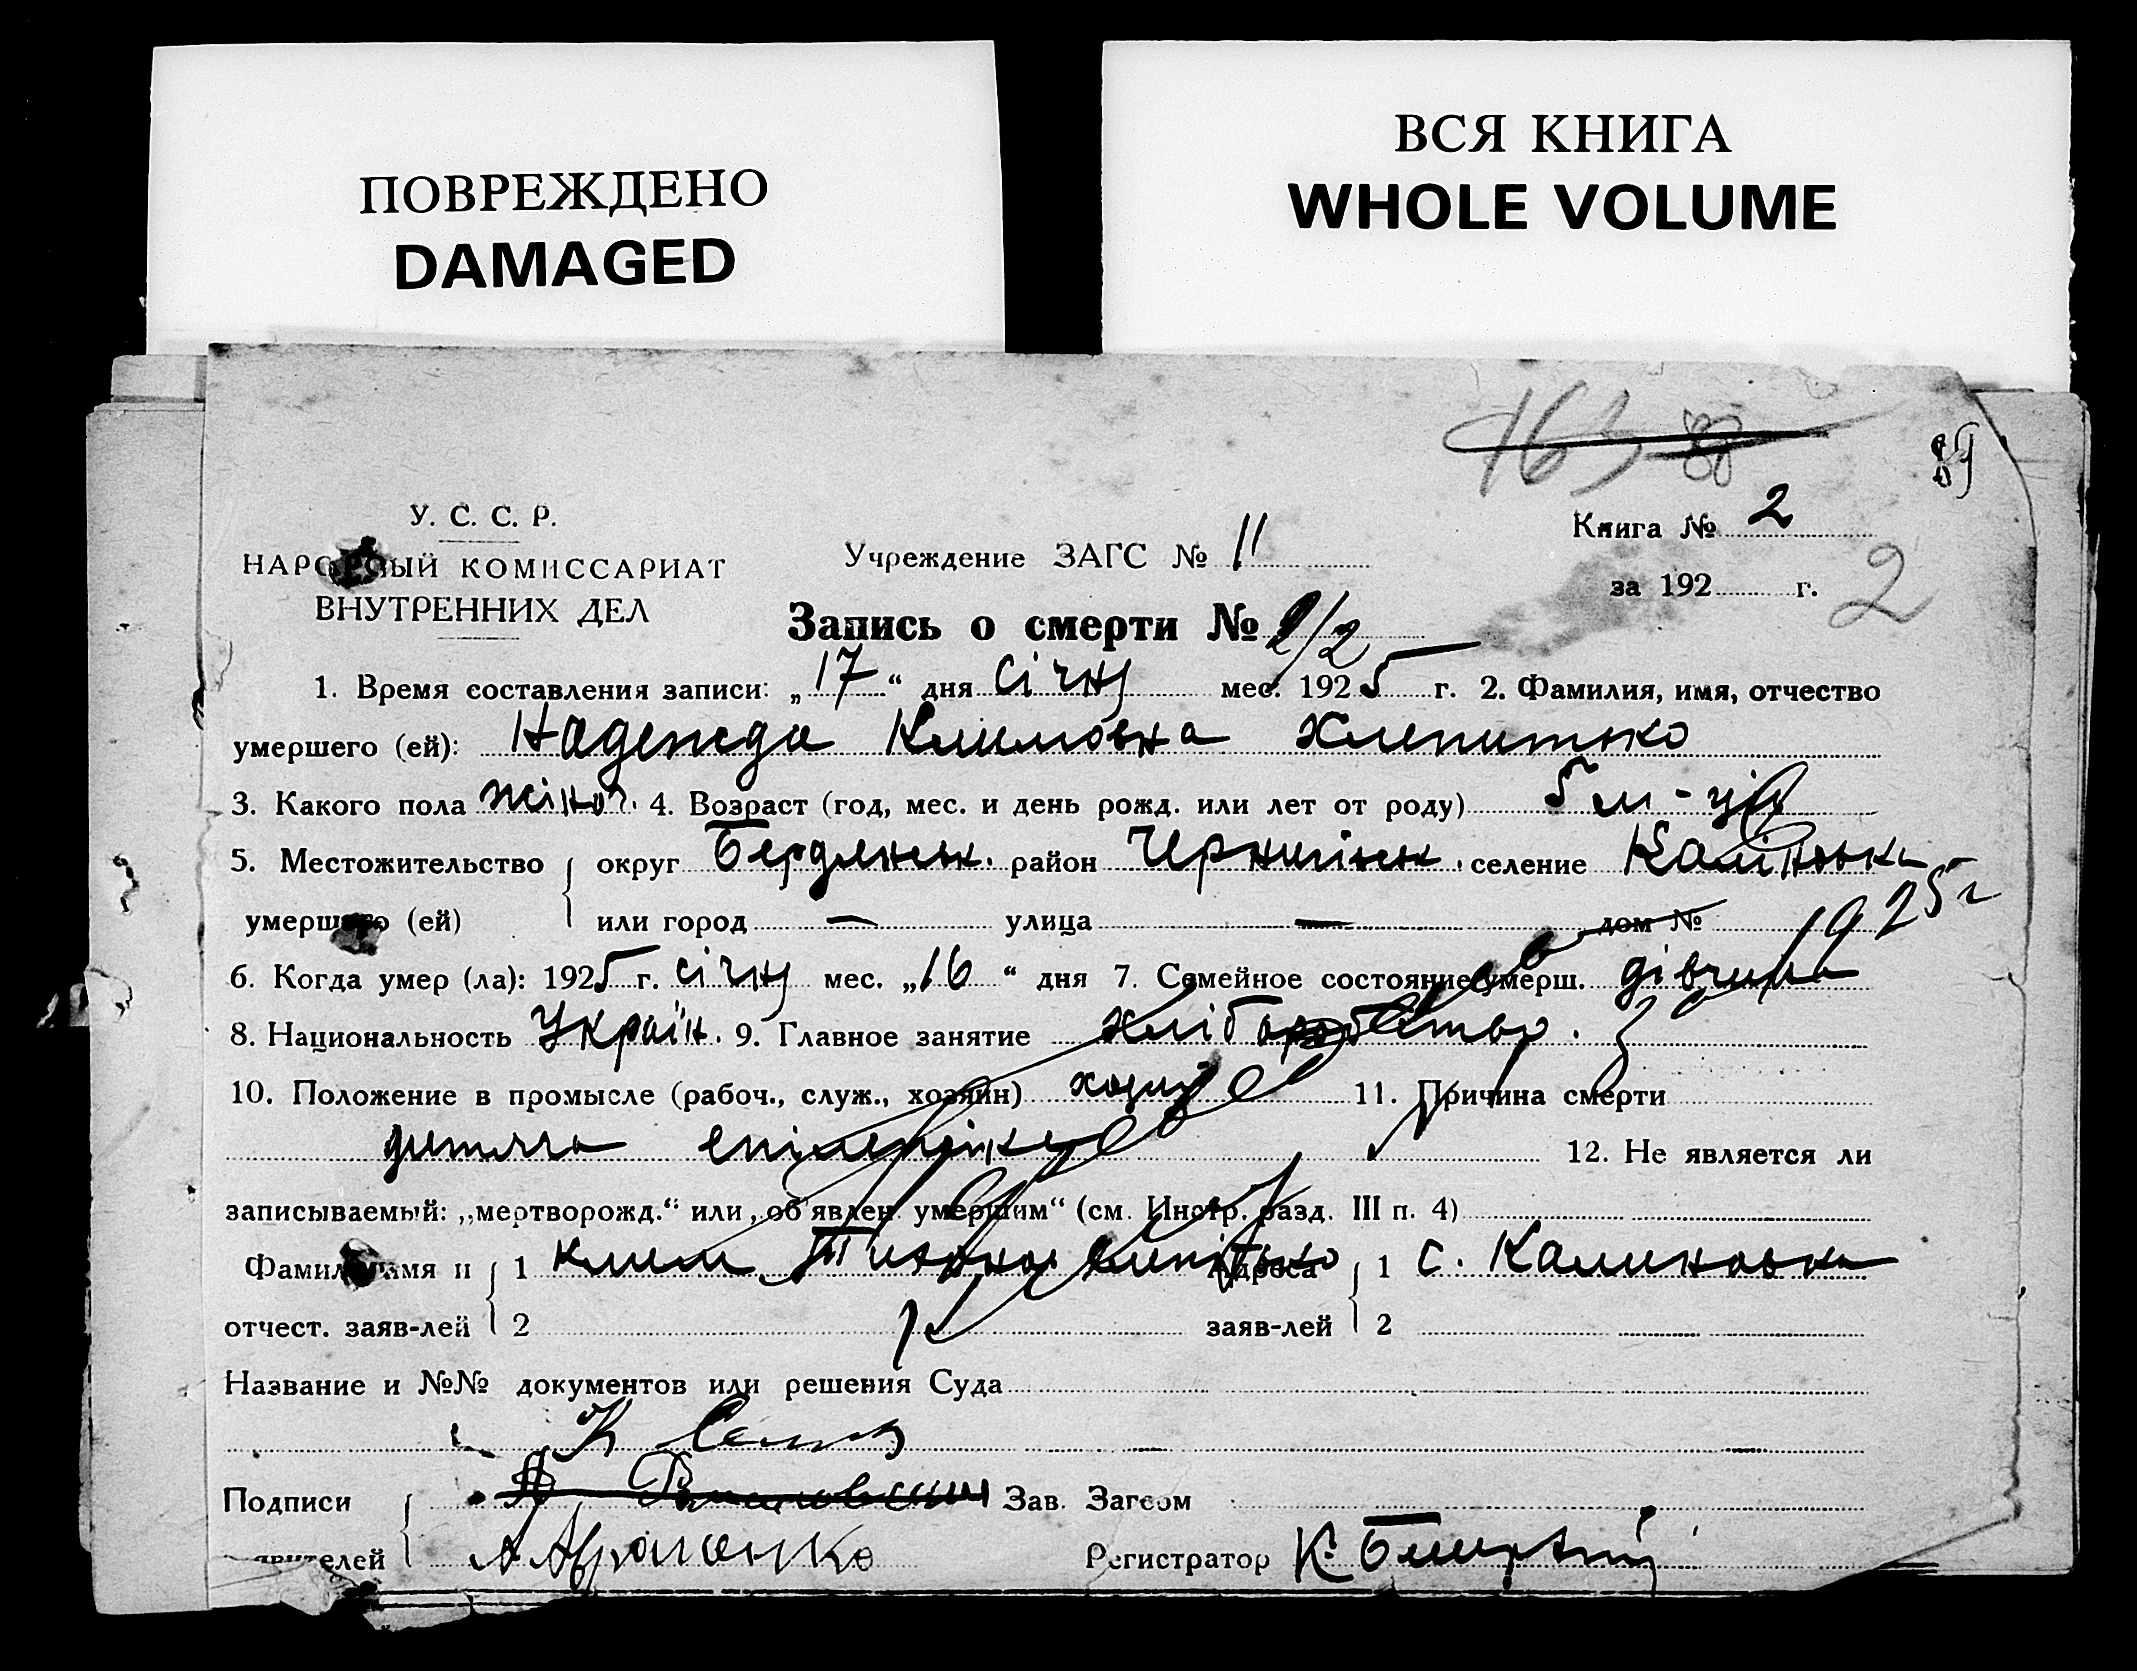 ПОВРЕЖДЕНО
DAMAGED
ВСЯ КНИГА
WHOLE VOLUME
163 88
89
У. С. С. Р.
НАРОДНЫЙ КОМИССАРИАТ
ВНУТРЕННИХ ДЕЛ
Учреждение ЗАГС № 11
Книга № 2
за 192 г. 2
Запись о смерти № 2/2
1. Время составления записи: „17“ дня січня мес. 1925 г. 2. Фамилия, имя, отчество
умершего (ей): Надежда Климовна Хлепитько
3. Какого пола жіноч. 4. Возраст (год, мес. и день рожд. или лет от роду) 5 м-ців
5. Местожительство округ Бердянськ. район Чернигівськ. селение Каліновка
умершего (ей) или город — улица — дом № 1925 г
6. Когда умер (ла): 1925 г. січня мес. „16“ дня 7. Семейное состояние умерш. дівчина
8. Национальность Україн. 9. Главное занятие хліборобство.
10. Положение в промысле (рабоч., служ., хозяин) 11. Причина смерти
дитяча
12. Не является ли
записываемый: „мертворожд.“ или „об'явлен умершим“ (см. Инстр. разд. III п. 4)
Фамил. имя и 1 Клим Адреса 1 с. Калиновка
отчест. заяв-лей 2 заяв-лей 2
Название и №№ документов или решения Суда
К
Подписи Зав. Загсом
явителей Регистратор К.